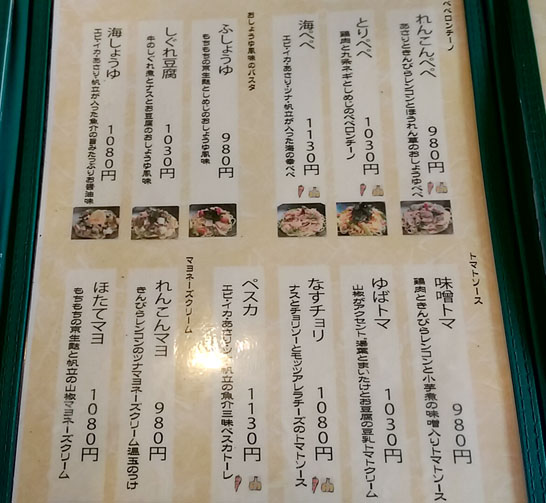 ペペロンチーノ
れんこんペペ 980円
あさりときんぴらレンコンとほうれん草のおしょうゆペペ
とりペペ 1030円
鶏肉と九条ネギとしめじのペペロンチーノ
海ペペ 1130円
エビ・イカ・あさり・ツナ・帆立が入った海の幸ペペ
おしょうゆ風味のパスタ
ふしょうゆ 980円
もちもちの京生麩としめじのおしょうゆ風味
しぐれ豆腐 1030円
牛のしぐれ煮とナスとお豆腐のおしょうゆ風味
海しょうゆ 1080円
エビ・イカ・あさり・ツナ・帆立が入った魚介の旨みたっぷりお醤油味
トマトソース
味噌トマ 980円
鶏肉ときんぴらレンコンと小芋煮の味噌入りトマトソース
ゆばトマ 1030円
山椒がアクセント湯葉とまいたけとお豆腐の豆乳トマトクリーム
なすチョリ 1080円
ナスとチョリソーとモッツアレラチーズのトマトソース
ペスカ 1130円
エビ・イカ・あさり・ツナ・帆立の魚介三昧ペスカトーレ
マヨネーズクリーム
れんこんマヨ 980円
きんぴらレンコンのツナマヨネーズクリーム温玉のっけ
ほたてマヨ 1080円
もちもちの京生麩と帆立の山椒マヨネーズクリーム